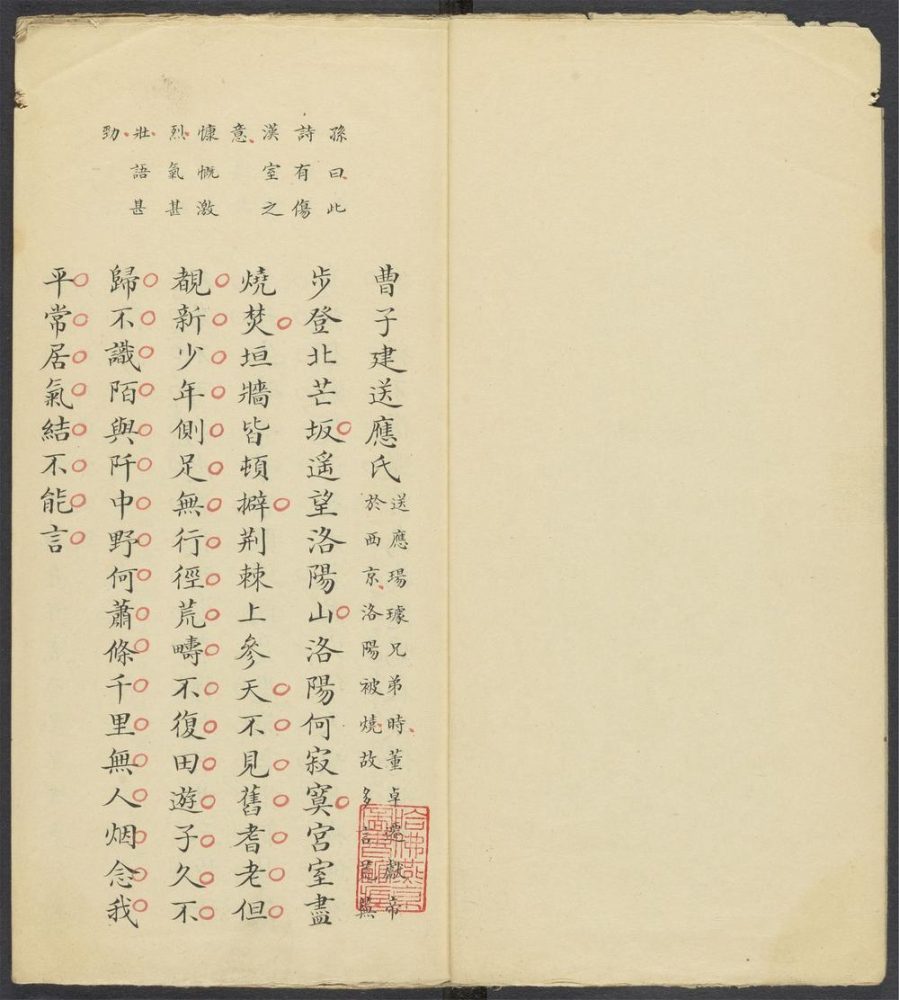 孫曰此
詩有傷
漢室之
意
慷慨激
烈氣甚
壯語甚
勁
曹子建送應氏
送應瑒璩兄弟時董卓遷獻帝
於西京洛陽被燒故多言荒蕪
步登北芒坂遙望洛陽山洛陽何寂寞宮室盡
燒焚垣牆皆頓擗荊棘上參天不見舊耆老但
覩新少年側足無行徑荒疇不復田遊子久不
歸不識陌與阡中野何蕭條千里無人烟念我
平常居氣結不能言
哈佛燕京